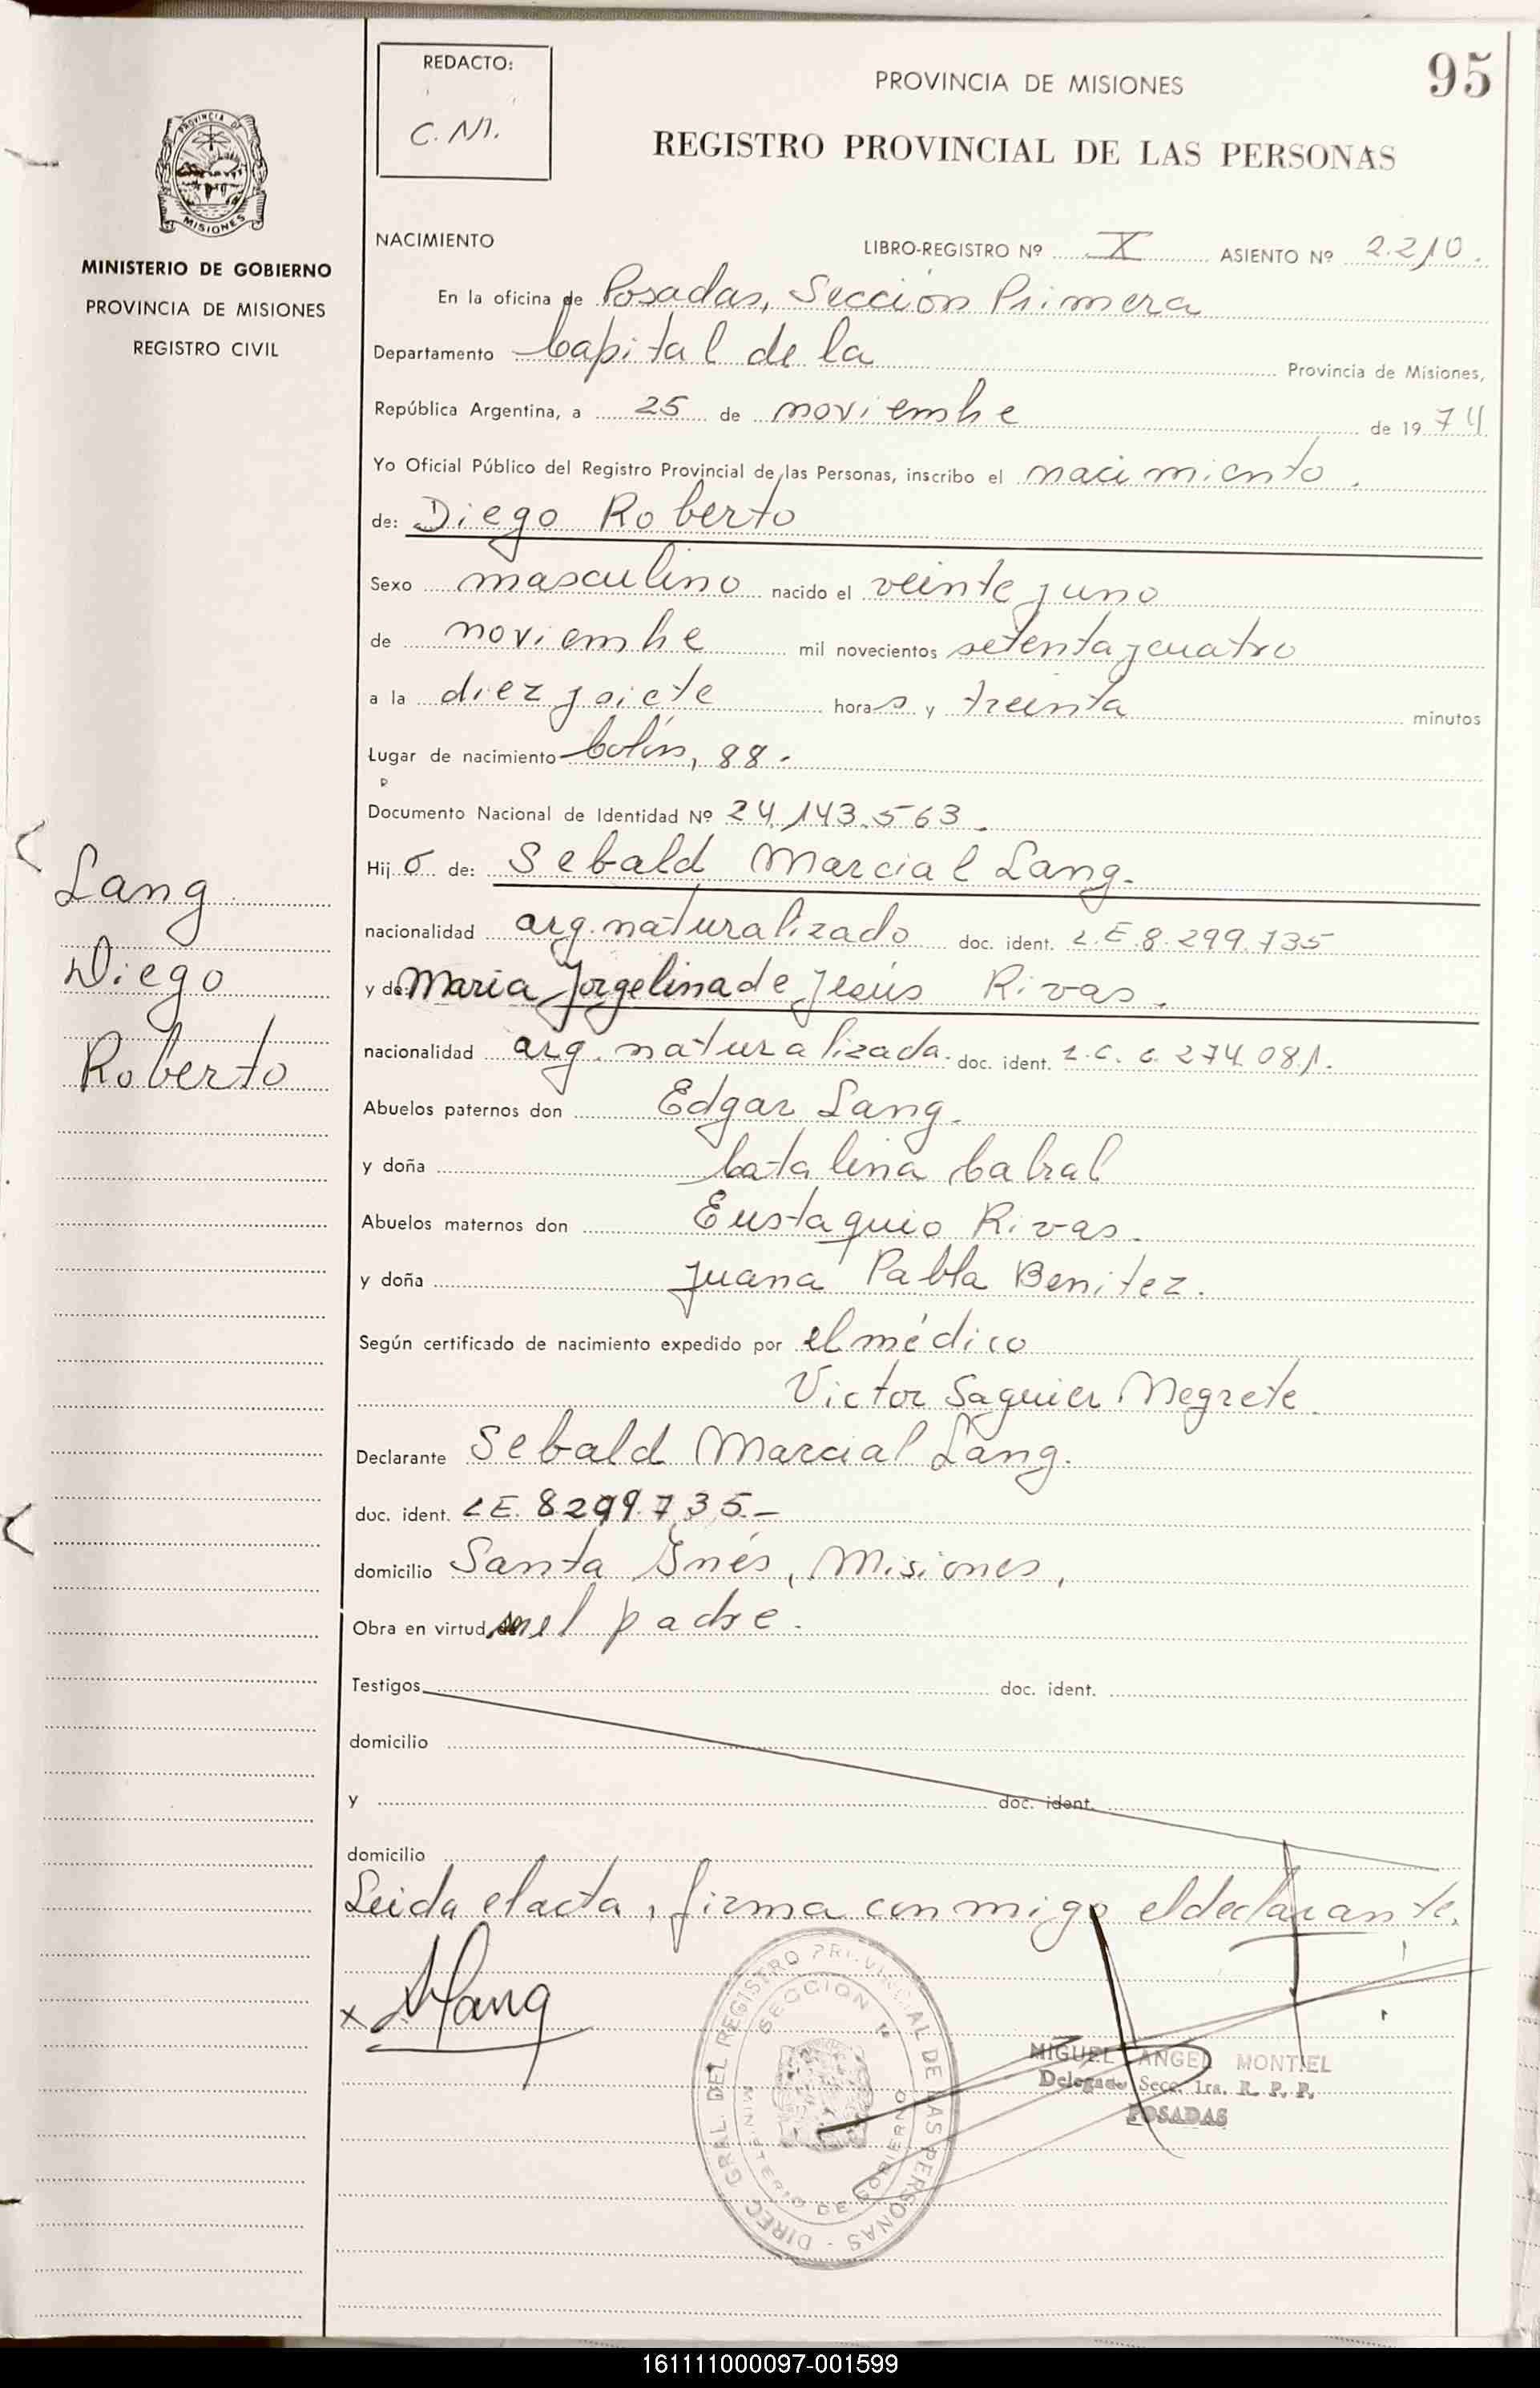 REDACTO:
C. M.
PROVINCIA DE MISIONES
95
REGISTRO PROVINCIAL DE LAS PERSONAS
PROVINCIA DE
MISIONES
MINISTERIO DE GOBIERNO
PROVINCIA DE MISIONES
REGISTRO CIVIL
NACIMIENTO
LIBRO-REGISTRO Nº X ASIENTO Nº 2.210.
En la oficina de Posadas, Sección Primera
Departamento Capital de la Provincia de Misiones,
República Argentina, a 25 de noviembre de 1974
Yo Oficial Público del Registro Provincial de las Personas, inscribo el nacimiento.
de: Diego Roberto
Sexo masculino nacido el veinte y uno
de noviembre mil novecientos setenta y cuatro
a la diez y siete horas y treinta minutos
Lugar de nacimiento Colón, 88.
Documento Nacional de Identidad Nº 24.143.563.
Hijo de: Sebald Marcial Lang.
nacionalidad arg. naturalizado doc. ident. L.E 8.299.735
y de: Maria Jorgelina de Jesús Rivas.
nacionalidad arg. naturalizada. doc. ident. L.C. 6.274.081.
Abuelos paternos don Edgar Lang.
y doña Catalina Cabral
Abuelos maternos don Eustaquio Rivas.
y doña Juana Pabla Benitez.
Según certificado de nacimiento expedido por el médico
Victor Saguier Negrete.
Declarante Sebald Marcial Lang.
doc. ident. LE. 8299.735.-
domicilio Santa Inés, Misiones,
Obra en virtud el padre.
Testigos doc. ident.
domicilio
y doc. ident.
domicilio
Leida el acta, firma conmigo el declarante.
Lang
Diego
Roberto
x Lang
DIREC. GRAL. DEL REGISTRO PROVINCIAL DE LAS PERSONAS -
SECCION 1ª
MINISTERIO DE GOBIERNO
MIGUEL ANGEL MONTIEL
Delegado Secc. 1ra. R. P. P.
POSADAS
161111000097-001599